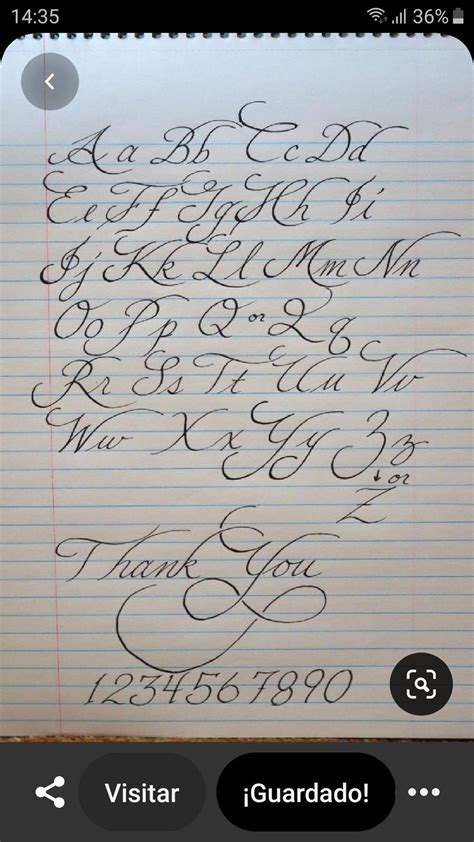 14:35 36%
Aa Bb Cc Dd
Ee Ff Gg Hh Ii
Jj Kk Ll Mm Nn
Oo Pp Q or Q q
Rr Ss Tt Uu Vv
Ww Xx Yy Zz
or
Z
Thank You
1234567890
Visitar ¡Guardado!